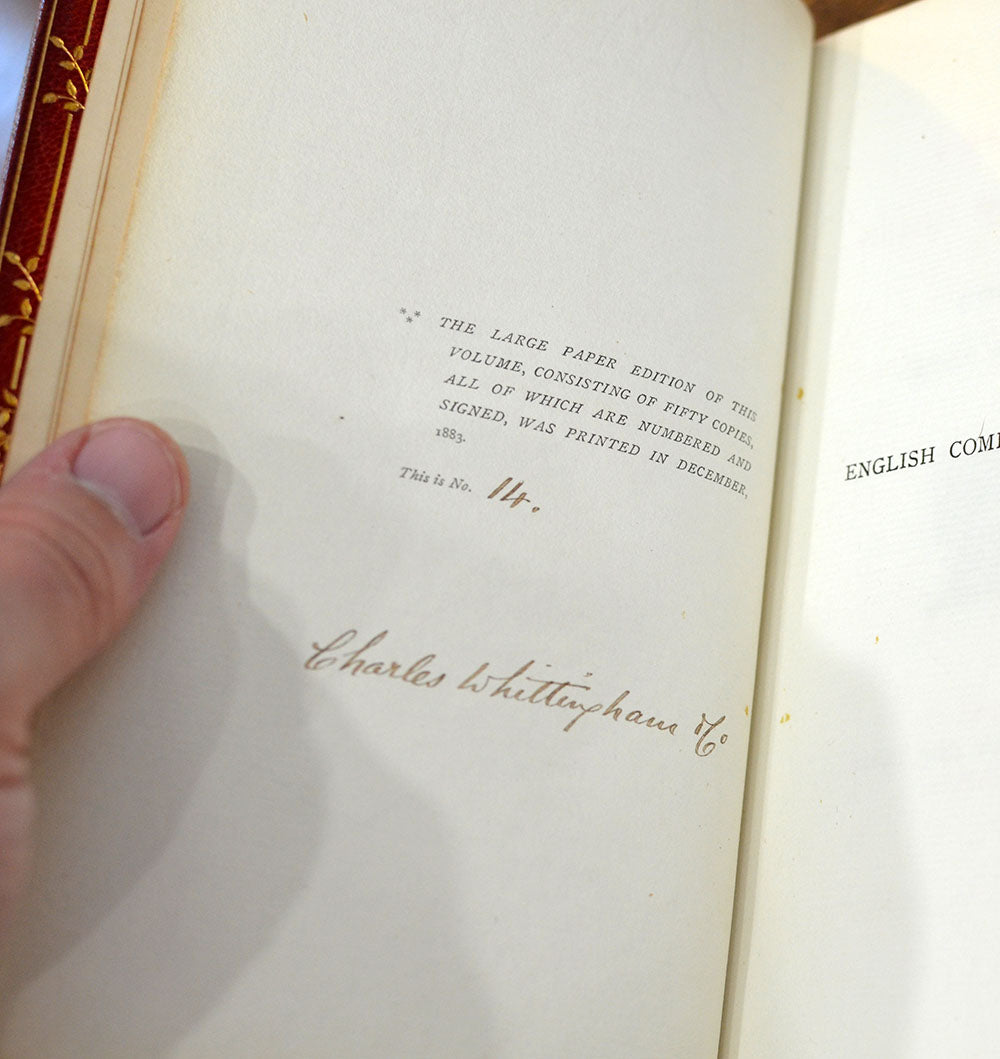 ⁂ THE LARGE PAPER EDITION OF THIS
VOLUME, CONSISTING OF FIFTY COPIES,
ALL OF WHICH ARE NUMBERED AND
SIGNED, WAS PRINTED IN DECEMBER,
1883.
This is No. 14.
Charles Whittingham & Co
ENGLISH